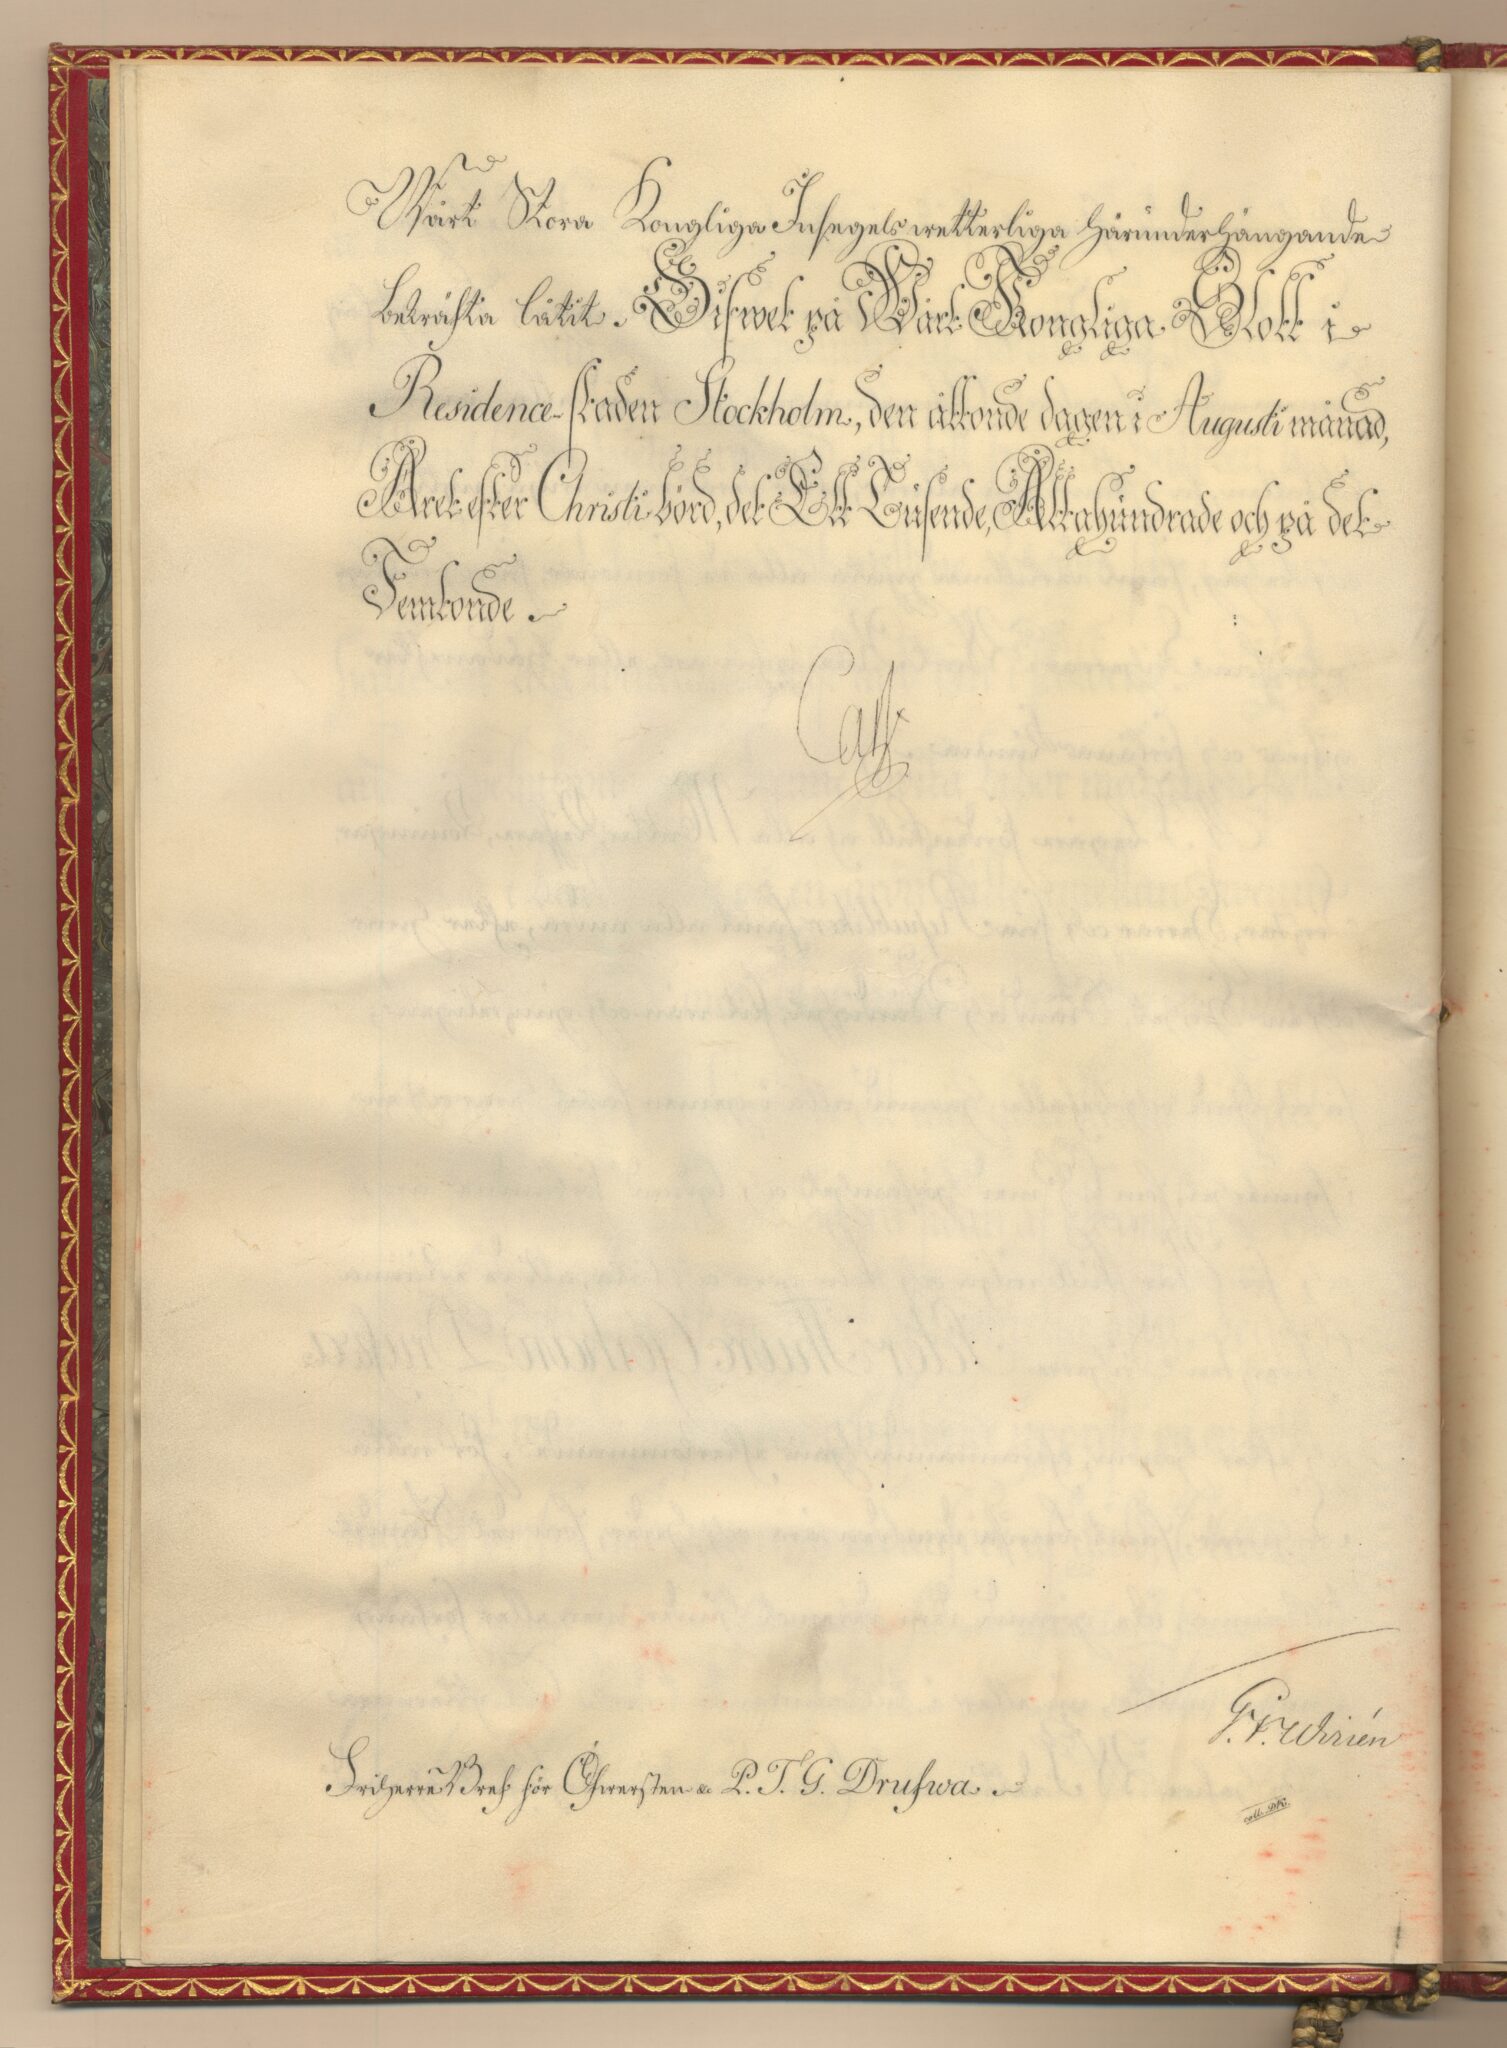 Wårt Stora Kongliga Insegels wetterliga härunderhängande
bekräfta låtit. Gifwet på Wårt Kongliga Slott i
Residence-staden Stockholm, den åttonde dagen i Augusti månad,
Året efter Christi börd, det Ett Tusende, Åttahundrade och på det
Femtonde.
Carl
G. F. Wirsén
Friherre Bref för Öfwersten &c P. T. G. Drufwa.
coll.